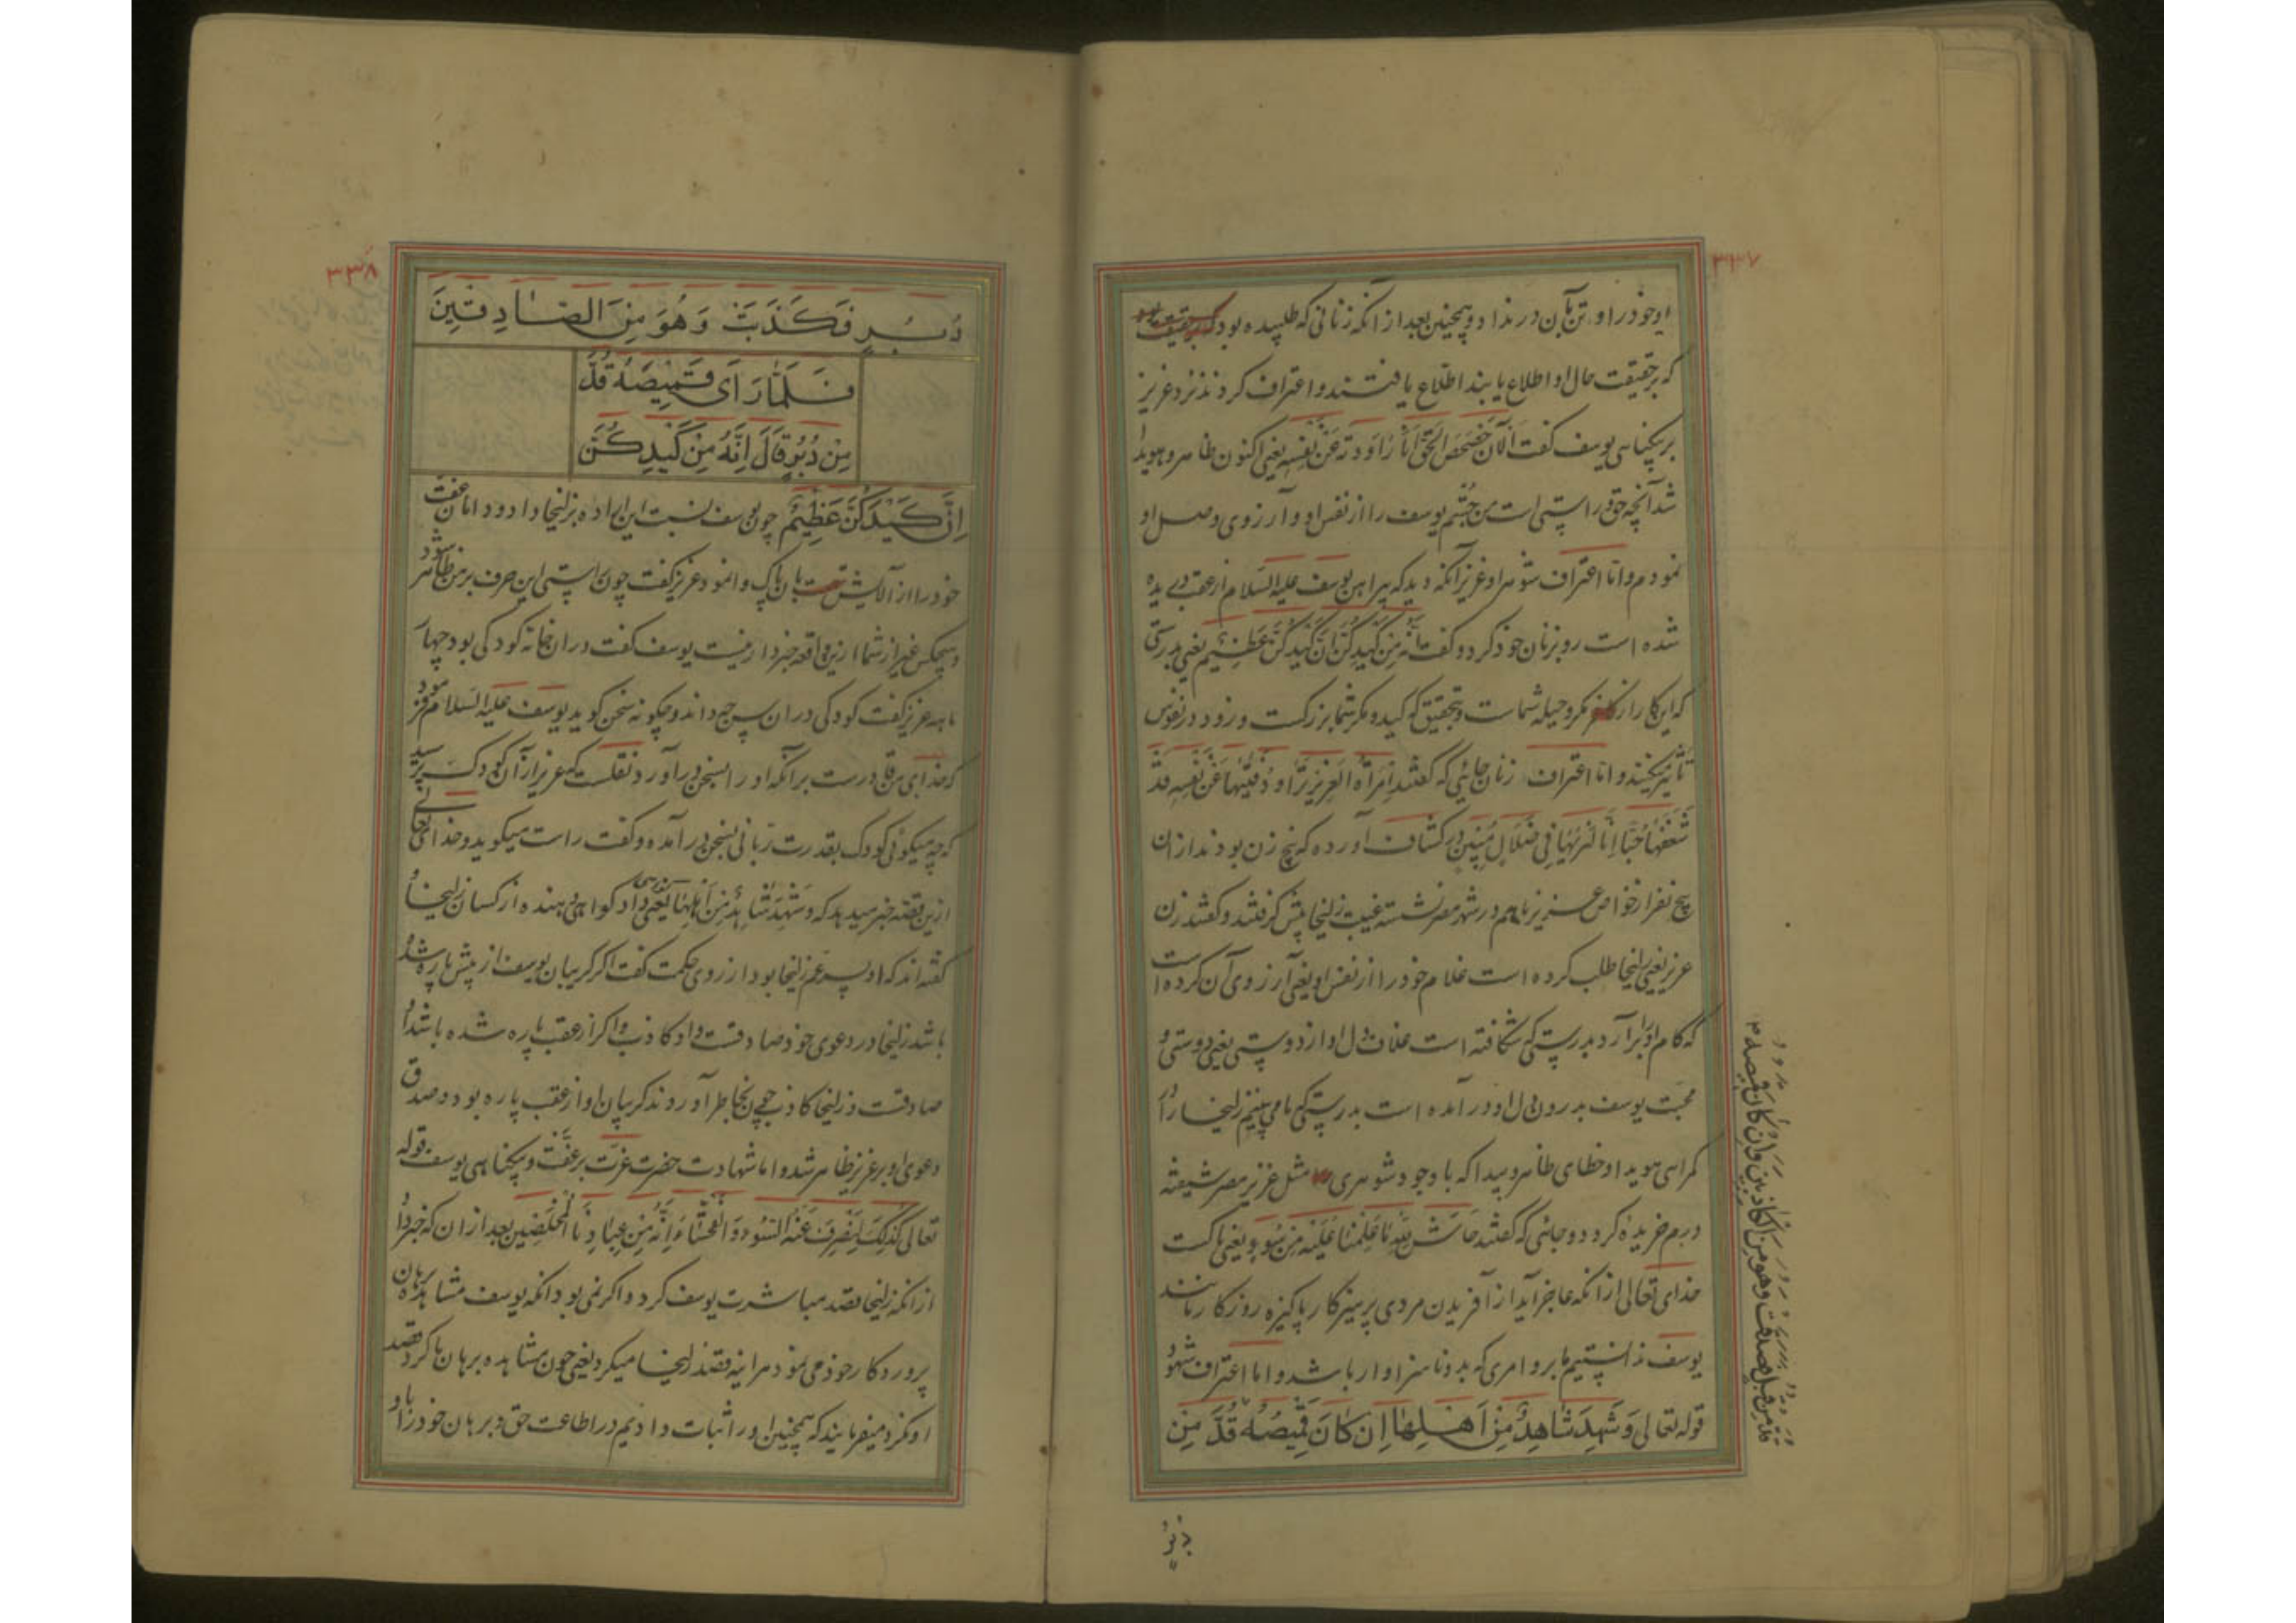 ۳۳۷
او خود را و تن بآن در نداد و همچنین بعد از انکه زنانی که طلبیده بود
که بر حقیقت حال او اطلاع یابند اطلاع یافتند و اعتراف کردند نزد عزیز
بر بیکناهی یوسف کفت اَلْآنَ حَصْحَصَ الْحَقُّ اَنَا رَاوَدتُه عَنْ نَفْسِه یعنی اکنون ظاهر و هویدا
شد آنچه حق و راستی است من جُستم یوسف را از نفس او و آرزوی وصل او
نمودم و اما اعتراف شوهر او عزیز آنکه دید که پیراهن یوسف علیه السّلام از عقب دریده
شده است رو بزنان خود کرد و کفت اِنَّه مِنْ کَیْدِکُنَّ اِنَّ کَیْدَکُنَّ عَظِیْمٌ یعنی بدرستی
که این کار از مکر و حیله شماست و بتحقیق که کید و مکر شما بزرکست و زود در نفوس
تأثیر میکند و اما اعتراف زنان جائی که کفتند اِمْرَأَةُ الْعَزِیْزِ تُرَاوِدُ فَتٰیهَا عَنْ نَفْسِه قَدْ
شَغَفَهَا حُبًّا اِنَّا لَنَرٰیهَا فِی ضَلَالٍ مُبِیْنٍ در کشاف آورده که پنج زن بودند از زنان
پنج نفر از خواص عزیز باهم در شهر مصر نشسته غیبت زلیخا پیش کرفتند و کفتند زن
عزیز یعنی زلیخا طلب کرده است غلام خود را از نفس او یعنی آرزوی آن کرده است
که کام او برآرد بدرستی که شکافته است غلاف دل او از دوستی یعنی دوستی و
محبت یوسف بدرون دل او در آمده است بدرستی که ما می بینیم زلیخا را در
کمراهی هویدا و خطای ظاهر و پیدا که با وجود شوهری مثل عزیز مصر شیفته
درم خریده کرد و جائی که کفتند حَاشَ لِلّٰهِ مَا عَلِمْنَا عَلَیْهِ مِنْ سُوءٍ یعنی پاکست
خدای تعالی از انکه عاجز آید از آفریدن مردی پرهیزکار پاکیزه روزکار مانند
یوسف ندانستیم ما برو امری که بد و ناسزاوار باشد و اما اعتراف شهود
قوله تعالی وَشَهِدَ شَاهِدٌ مِنْ اَهْلِهَا اِنْ کَانَ قَمِیْصُهُ قُدَّ مِنْ
قدّ من قبل فصدقت وهو من الکاذبین وان کان قمیصه
دُبُرٍ
۳۳۸
دُبُرٍ فَکَذَبَتْ وَهُوَ مِنَ الصَّادِقِیْنَ
فَلَمَّا رَاٰی قَمِیْصَهُ قُدَّ
مِنْ دُبُرٍ قَالَ اِنَّهُ مِنْ کَیْدِکُنَّ
اِنَّ کَیْدَکُنَّ عَظِیْمٌ چون یوسف نسبت این اراده بزلیخا داد و دامان عفت
خود را از آلایش بآن پاک وانمود عزیز کفت چون راستی این حرف بر من ظاهر شود
و هیچکس غیر از شما ازین واقعه خبردار نیست یوسف کفت در ان خانه کودکی بود چهار
ماهه عزیز کفت کودکی در ان سن چه داند و چکونه سخن کوید یوسف علیه السلام فرمود
که خدای من قادرست بر آنکه او را بسخن در آورد نقلست که عزیز از آن کودک پرسید
که چه میکوئی کودک بقدرت ربانی بسخن در آمده و کفت راست میکوید و خدای تعالی
ازین قصّه خبر میدهد که وَشَهِدَ شَاهِدٌ مِنْ اَهْلِهَا یعنی کواهی داد کواهی دهنده از کسان زلیخا و
کفته اند که او پسر عم زلیخا بود از روی حکمت کفت اکر کریبان یوسف از پیش پاره شده
باشد زلیخا در دعوی خود صادقست و او کاذب و اکر از عقب پاره شده باشد او
صادقست و زلیخا کاذب چون بخاطر آوردند کریبان او از عقب پاره بود و صدق
دعوی او بر عزیز ظاهر شد و اما شهادت حضرت عزت بر عفّت و بیکناهی یوسف قوله
تعالی کَذٰلِکَ لِنَصْرِفَ عَنْهُ السُّوءَ وَالْفَحْشَاءَ اِنَّهُ مِنْ عِبَادِنَا الْمُخْلَصِیْنَ بعد از ان که خبر داد
از انکه زلیخا قصد مباشرت یوسف کرد و اکر نمی بود انکه یوسف مشاهده برهان
پروردکار خود می نمود هر اینه قصد زلیخا میکرد یعنی چون مشاهده برهان کرد قصد
او نکرد میفرمایند که همچنین او را ثبات دادیم در اطاعت حق و برهان خود را باو